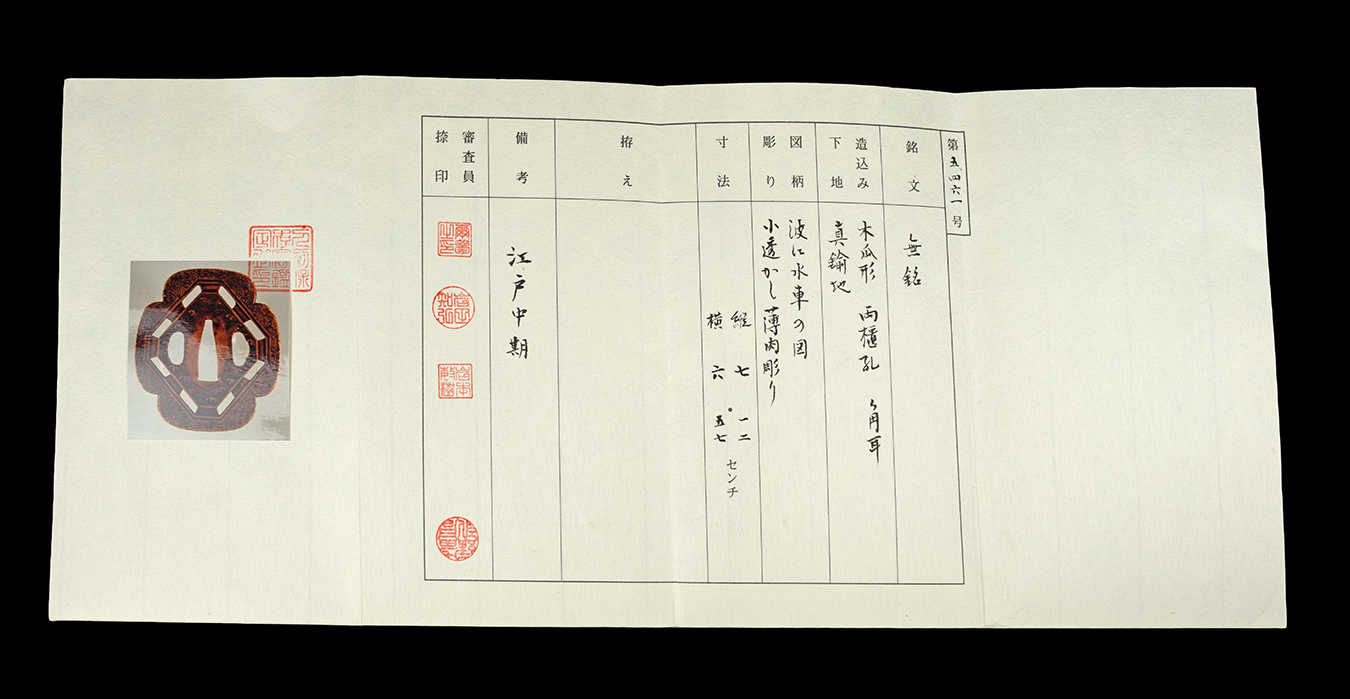 第五四六一号
銘文
無銘
造込み
下地
木瓜形 両櫃孔 角耳
真鍮地
図柄
彫り
波に水車の図
小透かし薄肉彫り
寸法
縦 七・一二
横 六・五七
センチ
拵え
備考
江戸中期
審査員
捺印